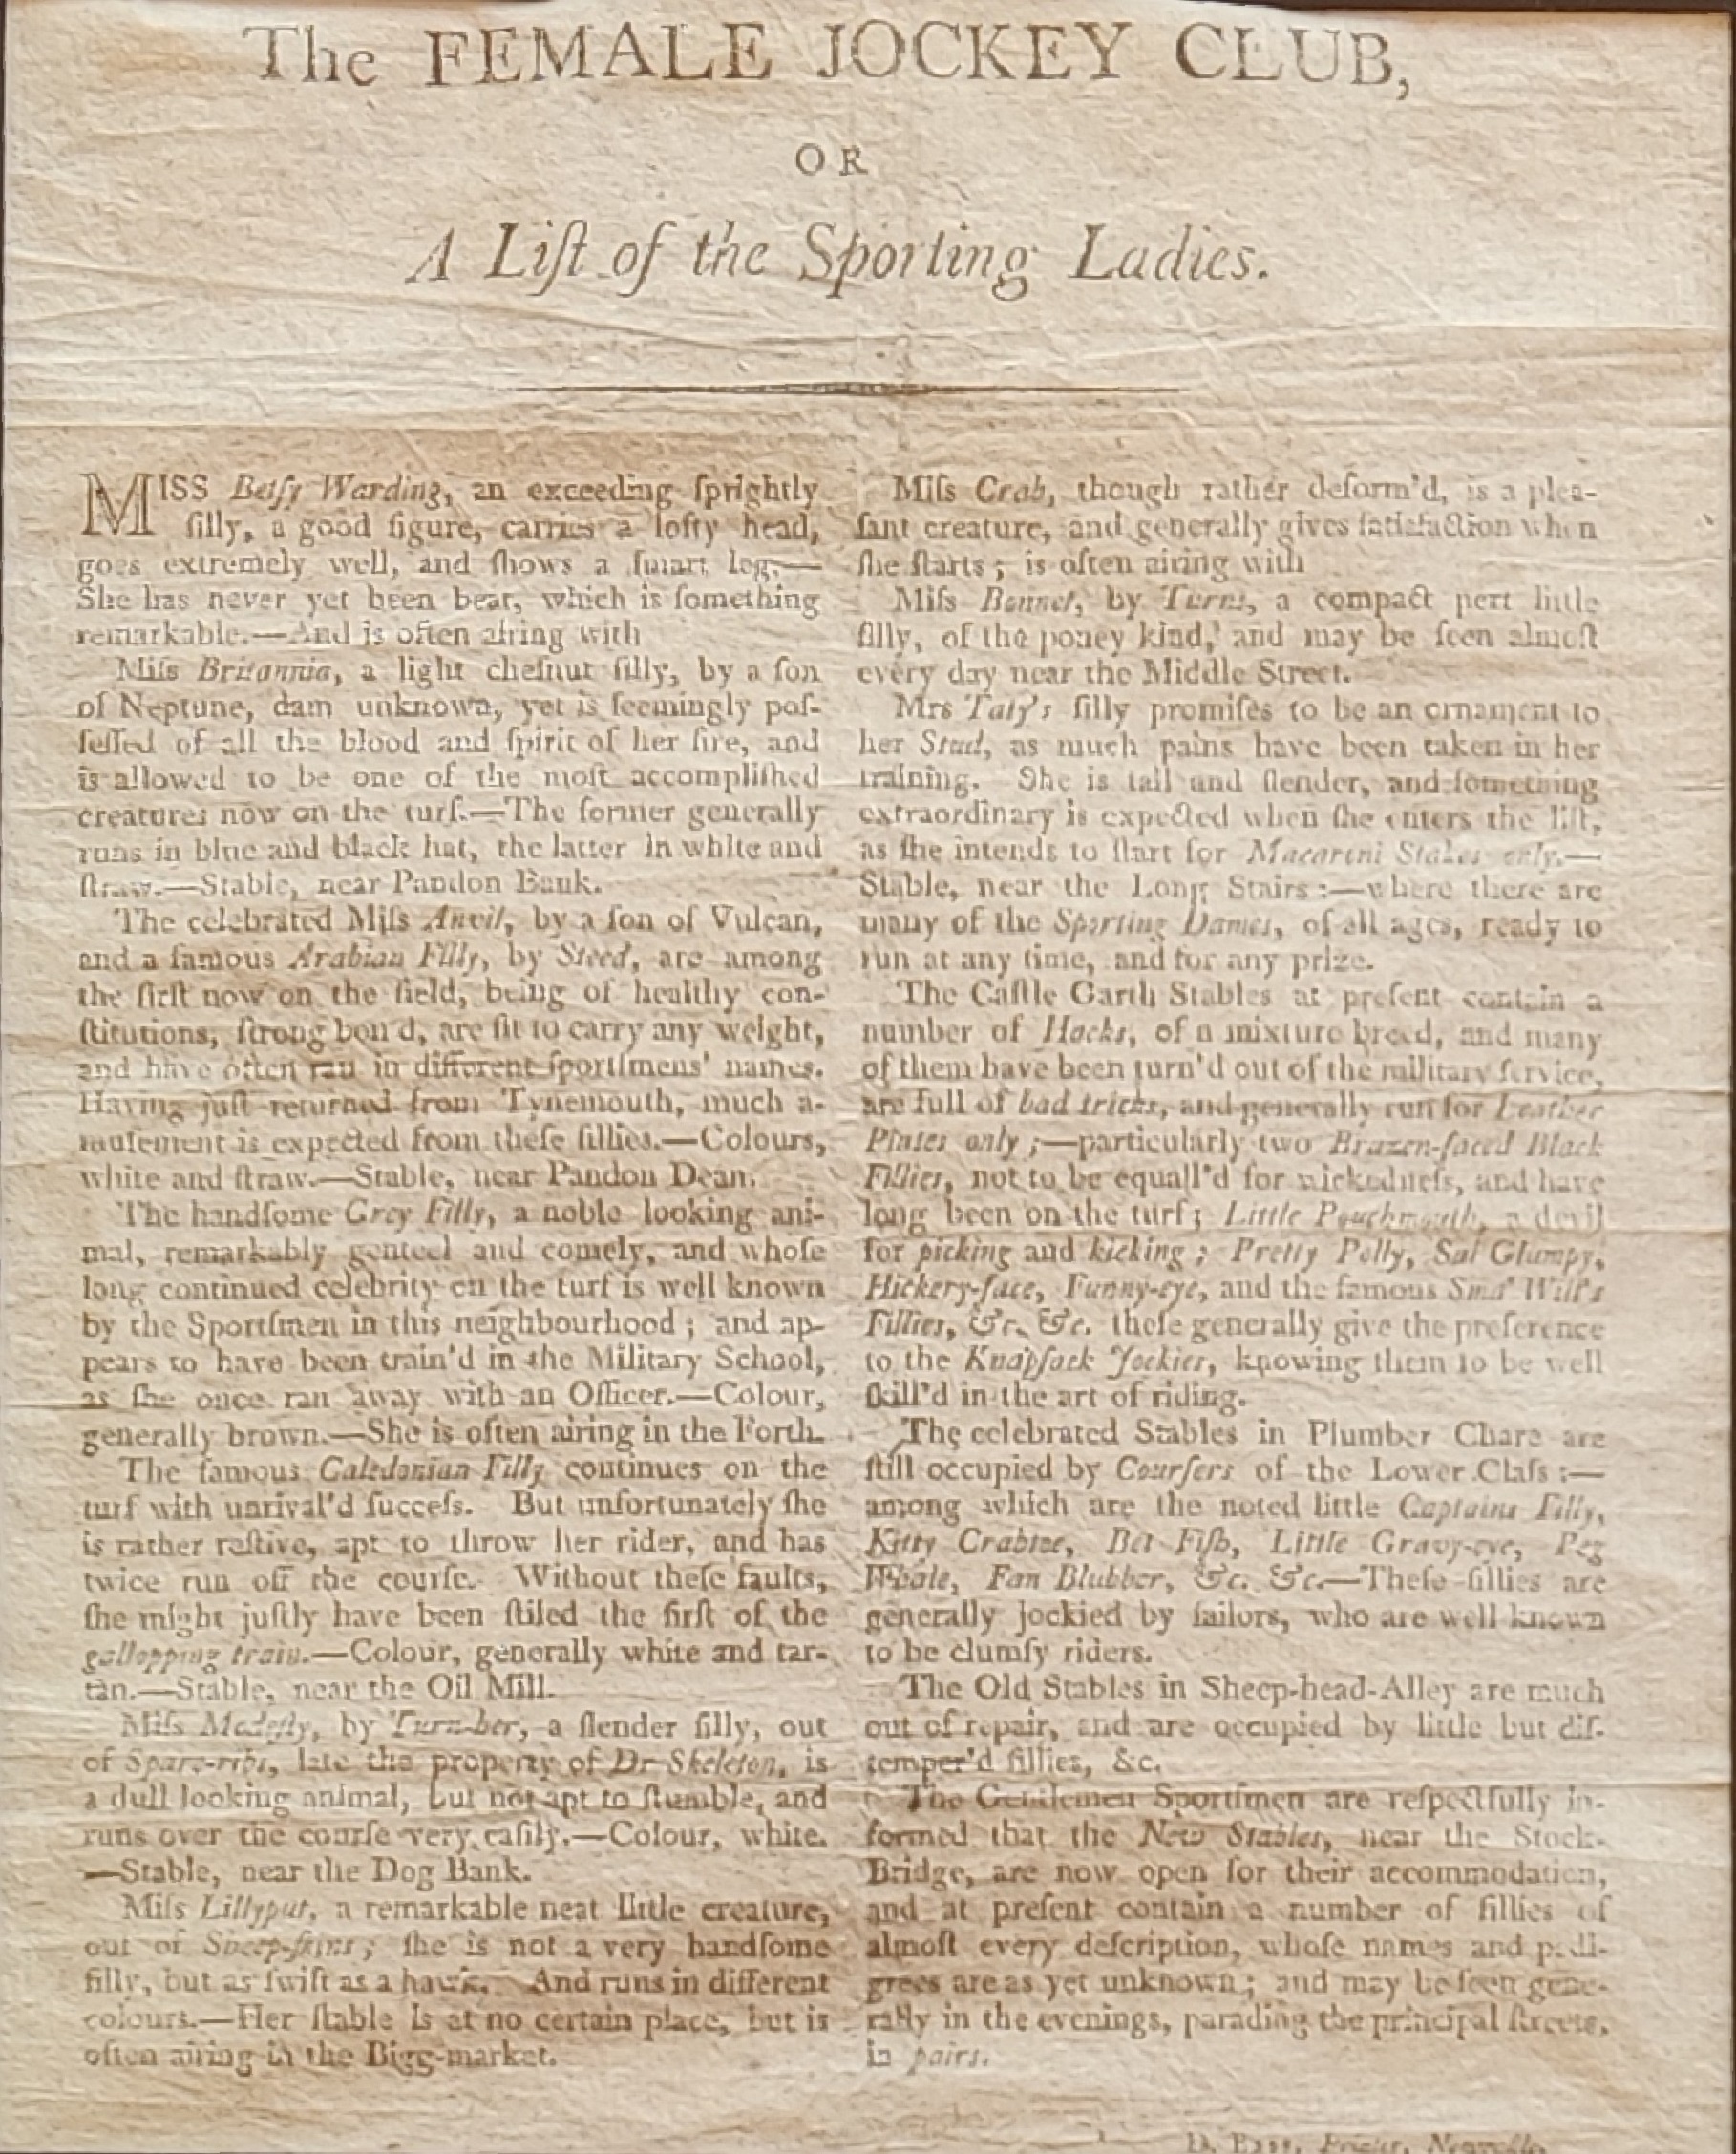 The FEMALE JOCKEY CLUB,
OR
A Liſt of the Sporting Ladies.
MISS Betſy Warding, an exceeding ſprightly
filly, a good figure, carries a lofty head,
goes extremely well, and ſhows a ſmart leg.—
She has never yet been beat, which is ſomething
remarkable.—And is often airing with
Miſs Britannia, a light cheſnut filly, by a ſon
of Neptune, dam unknown, yet is ſeemingly poſ-
ſeſſed of all the blood and ſpirit of her ſire, and
is allowed to be one of the moſt accompliſhed
creatures now on the turf.—The former generally
runs in blue and black hat, the latter in white and
ſtraw.—Stable, near Pandon Bank.
The celebrated Miſs Anvil, by a ſon of Vulcan,
and a famous Arabian Filly, by Steed, are among
the firſt now on the field, being of healthy con-
ſtitutions, ſtrong bon'd, are fit to carry any weight,
and have often ran in different ſportſmens' names.
Having juſt returned from Tynemouth, much a-
muſement is expected from theſe fillies.—Colours,
white and ſtraw.—Stable, near Pandon Dean.
The handſome Grey Filly, a noble looking ani-
mal, remarkably genteel and comely, and whoſe
long continued celebrity on the turf is well known
by the Sportſmen in this neighbourhood; and ap-
pears to have been train'd in the Military School,
as ſhe once ran away with an Officer.—Colour,
generally brown.—She is often airing in the Forth.
The famous Caledonian Filly continues on the
turf with unrival'd ſucceſs. But unfortunately ſhe
is rather reſtive, apt to throw her rider, and has
twice run off the courſe. Without theſe faults,
ſhe might juſtly have been ſtiled the firſt of the
gallopping train.—Colour, generally white and tar-
tan.—Stable, near the Oil Mill.
Miſs Modeſty, by Turn-her, a ſlender filly, out
of Spare-ribs, late the property of Dr Skeleton, is
a dull looking animal, but not apt to ſtumble, and
runs over the courſe very eaſily.—Colour, white.
—Stable, near the Dog Bank.
Miſs Lillyput, a remarkable neat little creature,
out of Sheep-ſkins; ſhe is not a very handſome
filly, but as ſwift as a hawk. And runs in different
colours.—Her ſtable is at no certain place, but is
often airing in the Bigg-market.
Miſs Crab, though rather deform'd, is a plea-
ſant creature, and generally gives ſatisfaction when
ſhe ſtarts; is often airing with
Miſs Bonnet, by Turns, a compact pert little
filly, of the poney kind, and may be ſeen almoſt
every day near the Middle Street.
Mrs Taty's filly promiſes to be an ornament to
her Stud, as much pains have been taken in her
training. She is tall and ſlender, and ſomething
extraordinary is expected when ſhe enters the liſt,
as ſhe intends to ſtart for Macaroni Stakes only.—
Stable, near the Long Stairs:—where there are
many of the Sporting Dames, of all ages, ready to
run at any time, and for any prize.
The Caſtle Garth Stables at preſent contain a
number of Hacks, of a mixture breed, and many
of them have been turn'd out of the military ſervice,
are full of bad tricks, and generally run for Leather
Plates only;—particularly two Brazen-faced Black
Fillies, not to be equall'd for wickedneſs, and have
long been on the turf; Little Pouchmouth, a devil
for picking and kicking; Pretty Polly, Sal Glumpy,
Hickery-face, Funny-eye, and the famous Sma' Will's
Fillies, &c. &c. theſe generally give the preference
to the Knapſack Jockies, knowing them to be well
ſkill'd in the art of riding.
The celebrated Stables in Plumber Chare are
ſtill occupied by Courſers of the Lower Claſs:—
among which are the noted little Captains Filly,
Kitty Crabtee, Bet Fiſh, Little Gravy-eye, Peg
Whale, Fan Blubber, &c. &c.—Theſe fillies are
generally jockied by ſailors, who are well known
to be clumſy riders.
The Old Stables in Sheep-head-Alley are much
out of repair, and are occupied by little but diſ-
temper'd fillies, &c.
The Gentlemen Sportſmen are reſpectfully in-
formed that the New Stables, near the Stock-
Bridge, are now open for their accommodation,
and at preſent contain a number of fillies of
almoſt every deſcription, whoſe names and pedi-
grees are as yet unknown; and may be ſeen gene-
rally in the evenings, parading the principal ſtreets,
in pairs.
D. Printer, Newcaſtle